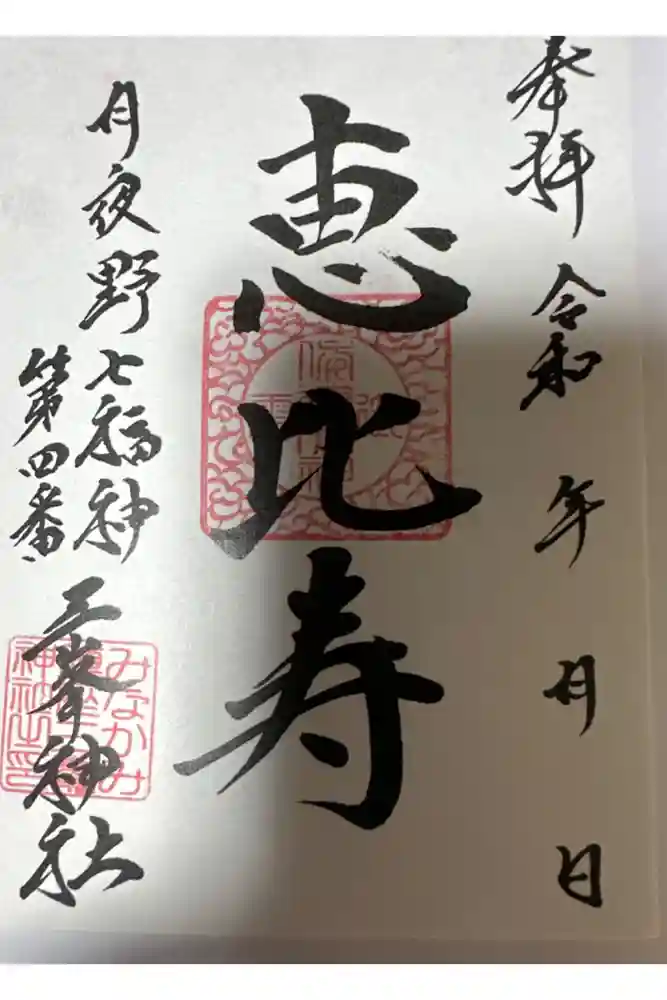 奉拝 令和 年 月 日
恵比寿
月夜野七福神
第四番
三峯神社
みなかみ
神社之印